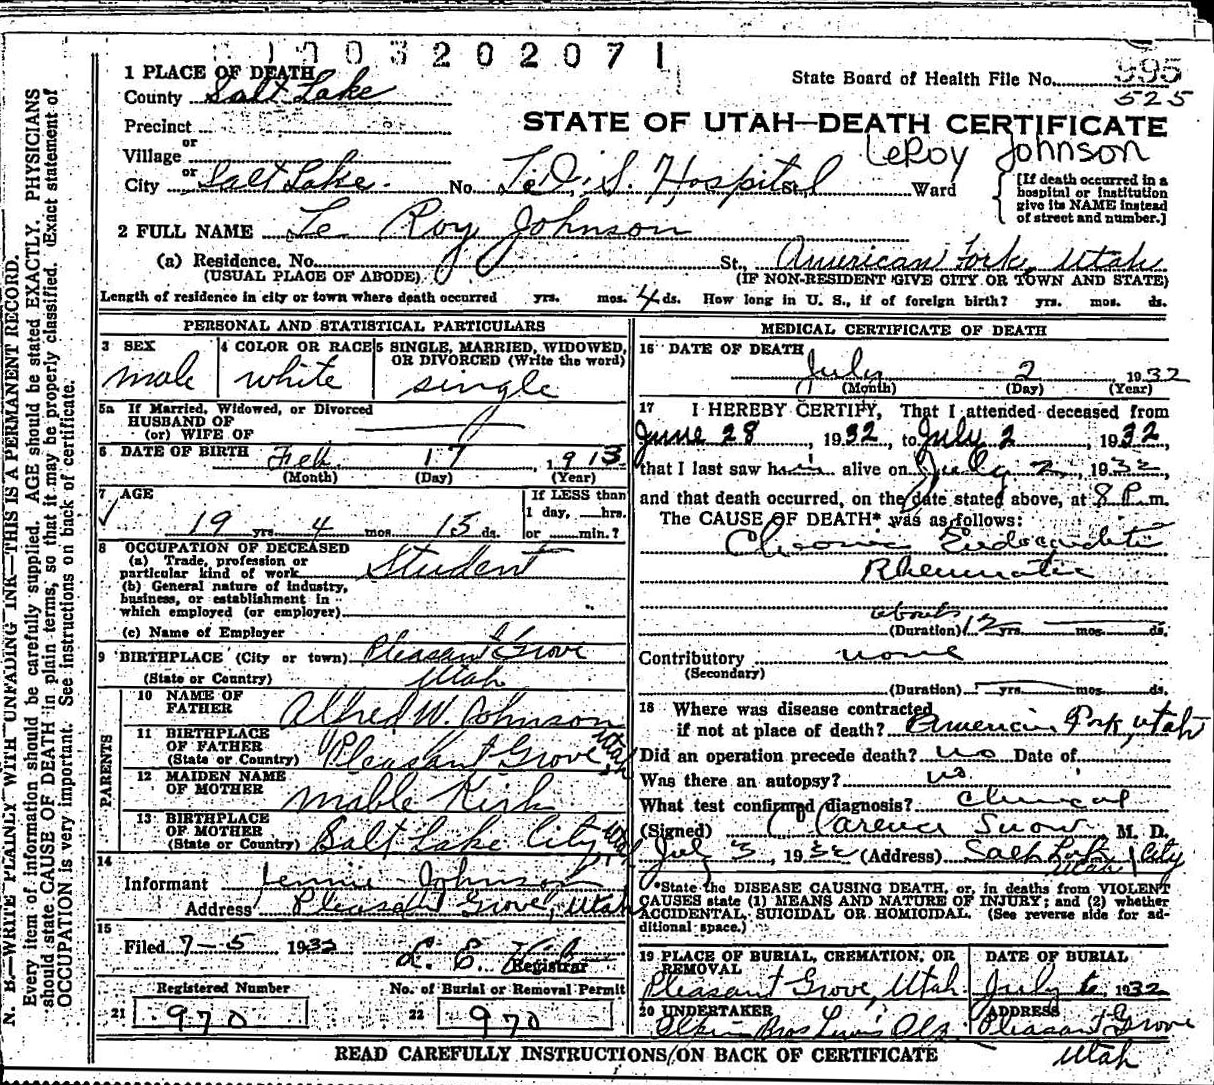 1003202071
1 PLACE OF DEATH
County Salt Lake
State Board of Health File No. 995
525
Precinct
or
Village
or
City Salt Lake. No. L.D.S. Hospital St. Ward
STATE OF UTAH—DEATH CERTIFICATE
LeRoy Johnson
[If death occurred in a
hospital or institution
give its NAME instead
of street and number.]
2 FULL NAME Le Roy Johnson
(a) Residence, No. St., American Fork, Utah
(USUAL PLACE OF ABODE) (IF NON-RESIDENT GIVE CITY OR TOWN AND STATE)
Length of residence in city or town where death occurred yrs. mos. 4 ds. How long in U. S., if of foreign birth? yrs. mos. ds.
PERSONAL AND STATISTICAL PARTICULARS
3 SEX
male
4 COLOR OR RACE
white
5 SINGLE, MARRIED, WIDOWED,
OR DIVORCED (Write the word)
single
5a If Married, Widowed, or Divorced
HUSBAND OF
(or) WIFE OF
6 DATE OF BIRTH Feb. 17, 1913
(Month) (Day) (Year)
7 AGE
19 yrs. 4 mos. 15 ds.
If LESS than
1 day, hrs.
or min.?
8 OCCUPATION OF DECEASED
(a) Trade, profession or
particular kind of work Student
(b) General nature of industry,
business, or establishment in
which employed (or employer)
(c) Name of Employer
9 BIRTHPLACE (City or town) Pleasant Grove
(State or Country) Utah
PARENTS
10 NAME OF
FATHER Alfred W. Johnson
11 BIRTHPLACE
OF FATHER
(State or Country) Pleasant Grove, Utah
12 MAIDEN NAME
OF MOTHER Mable Kirk
13 BIRTHPLACE
OF MOTHER
(State or Country) Salt Lake City, Utah
14
Informant Jennie Johnson
Address Pleasant Grove, Utah
15
Filed 7-5 1932 L. E.
Registrar
Registered Number
21 970
No. of Burial or Removal Permit
22 970
MEDICAL CERTIFICATE OF DEATH
16 DATE OF DEATH
July 2 1932
(Month) (Day) (Year)
17 I HEREBY CERTIFY, That I attended deceased from
June 28, 1932, to July 2, 1932
that I last saw him alive on July 2, 1932
and that death occurred, on the date stated above, at 8 P.m.
The CAUSE OF DEATH* was as follows:
Chronic Endocarditis
Rheumatic
about
(Duration) 12 yrs. mos. ds.
Contributory none
(Secondary)
(Duration) yrs. mos. ds.
18 Where was disease contracted
if not at place of death? American Fork, Utah
Did an operation precede death? no Date of
Was there an autopsy? no
What test confirmed diagnosis? Clinical
(Signed) Clarence Snow M. D.
July 3, 1932 (Address) Salt Lake City
Utah
*State the DISEASE CAUSING DEATH, or, in deaths from VIOLENT
CAUSES state (1) MEANS AND NATURE OF INJURY; and (2) whether
ACCIDENTAL, SUICIDAL OR HOMICIDAL. (See reverse side for ad-
ditional space.)
19 PLACE OF BURIAL, CREMATION, OR
REMOVAL
Pleasant Grove, Utah
DATE OF BURIAL
July 6, 1932
20 UNDERTAKER
ADDRESS
Pleasant Grove
Utah
READ CAREFULLY INSTRUCTIONS ON BACK OF CERTIFICATE
N. B.—WRITE PLAINLY WITH UNFADING INK—THIS IS A PERMANENT RECORD.
Every item of information should be carefully supplied. AGE should be stated EXACTLY. PHYSICIANS
should state CAUSE OF DEATH in plain terms, so that it may be properly classified. Exact statement of
OCCUPATION is very important. See instructions on back of certificate.